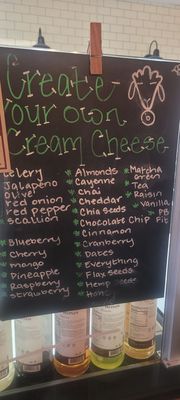 Create
Your own
Cream Cheese
celery
Jalapeño
olive
red onion
red pepper
scallion
Blueberry
Cherry
mango
Pineapple
Raspberry
strawberry
Almonds
Cayenne
Chai
Cheddar
Chia seeds
Chocolate Chip
Cinnamon
Cranberry
Dates
Everything
Flax Seeds
Hemp Seeds
Honey
Matcha
Green
Tea
Raisin
Vanilla
PB